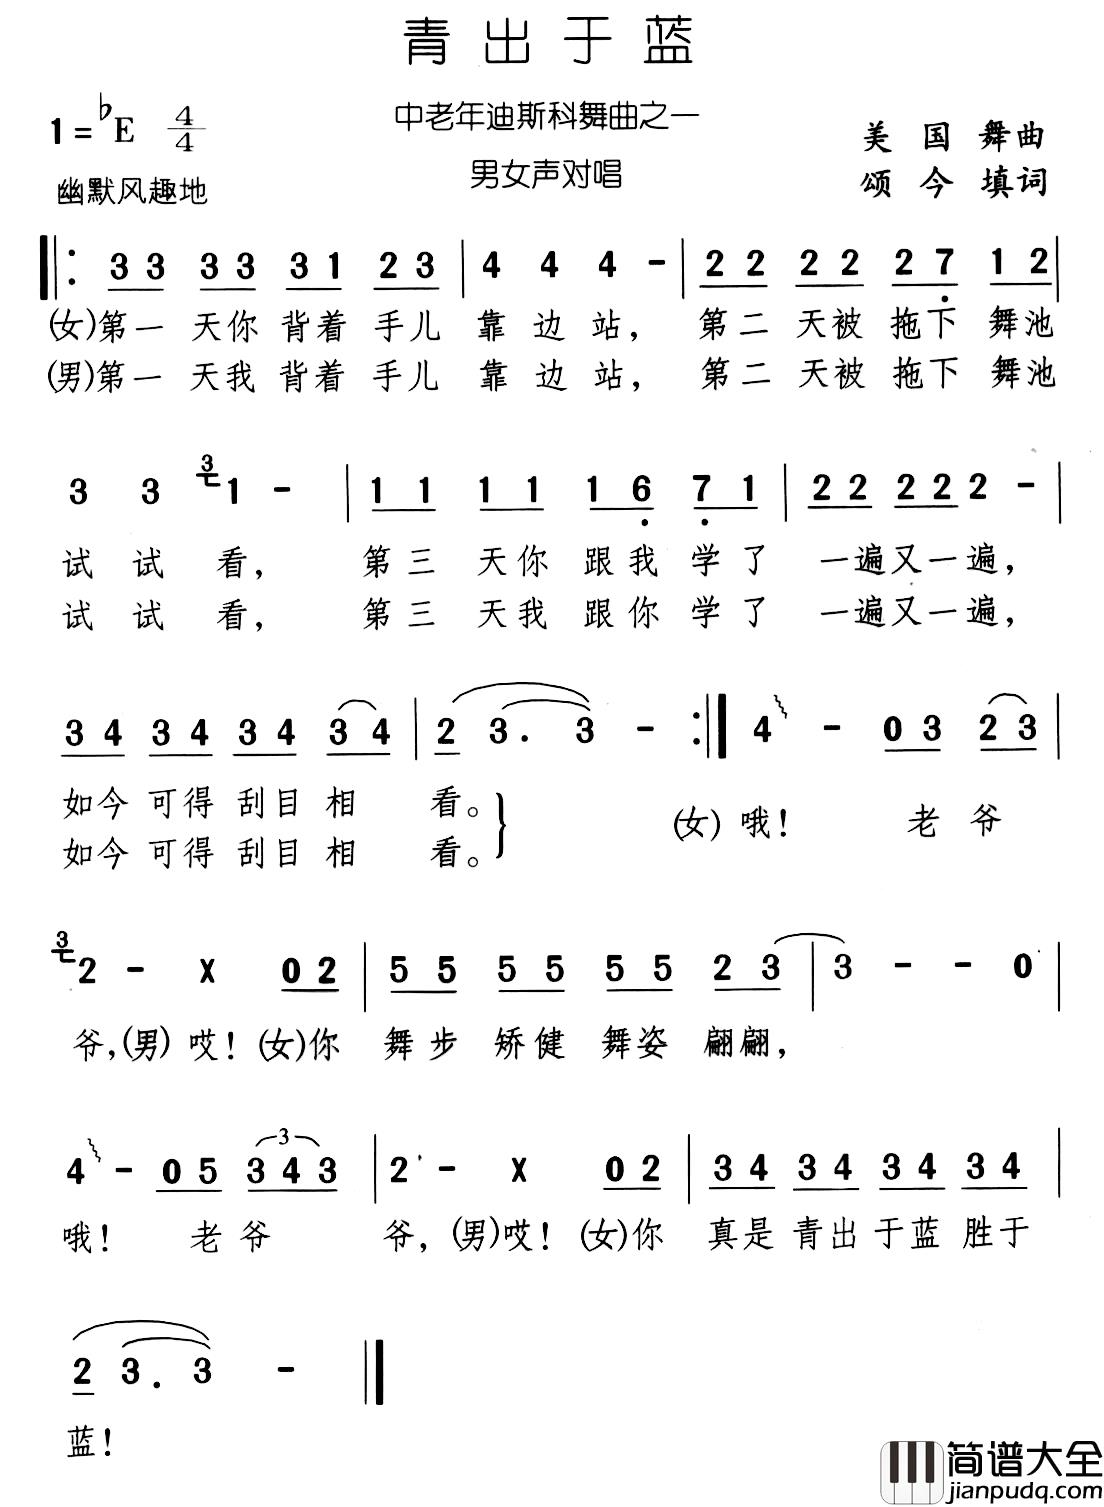 青出于蓝
中老年迪斯科舞曲之一
1=♭E 4/4
美国舞曲
男女声对唱
颂今填词
幽默风趣地
‖: 3 3 3 3 3 1 2 3 | 4 4 4 - | 2 2 2 2 2 7 1 2 |
(女)第一 天你 背着 手儿 靠 边 站, 第二 天被 拖下 舞池
(男)第一 天我 背着 手儿 靠 边 站, 第二 天被 拖下 舞池
3 3 3 1 - | 1 1 1 1 1 6 7 1 | 2 2 2 2 2 2 - |
试 试 看, 第三 天你 跟我 学了 一遍又一遍,
试 试 看, 第三 天我 跟你 学了 一遍又一遍,
3 4 3 4 3 4 3 4 | 2 3. 3 - :‖ 4 - 0 3 2 3 |
如今 可得 刮目 相 看。 (女) 哦! 老 爷
如今 可得 刮目 相 看。
3 2 - X 0 2 | 5 5 5 5 5 5 2 3 | 3 - - 0 |
爷,(男) 哎! (女)你 舞步 矫健 舞姿 翩翩,
4 - 0 5 3 4 3 3 | 2 - X 0 2 | 3 4 3 4 3 4 3 4 |
哦! 老 爷 爷, (男)哎! (女)你 真是 青出 于蓝 胜于
2 3. 3 - ‖
蓝!
简谱大全
jianpudq.com